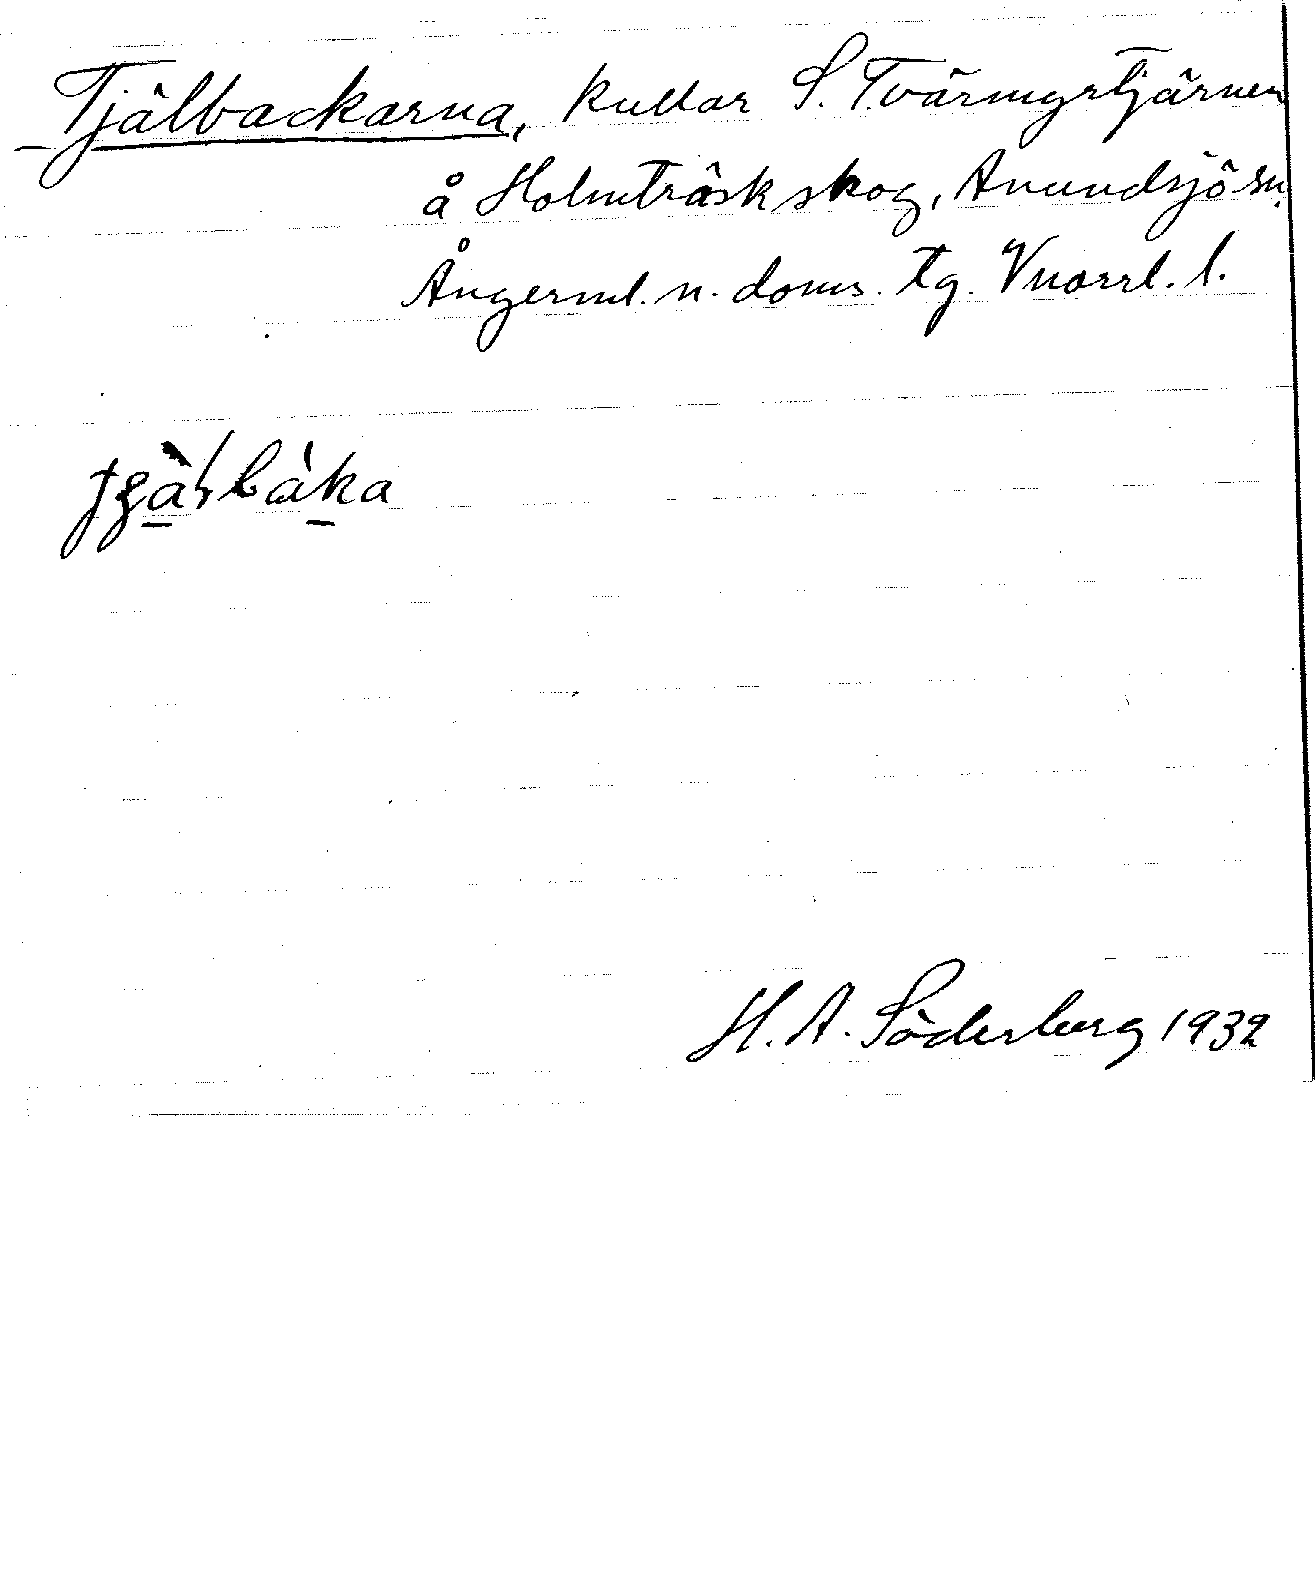 Tjälbackarna, kullar S. Tvärmyrtjärnen
å Holmträsk skog, Anundsjö sn.
Ångerml. n. doms. tg. Vnorrl. l.
H. A. Söderberg 1932